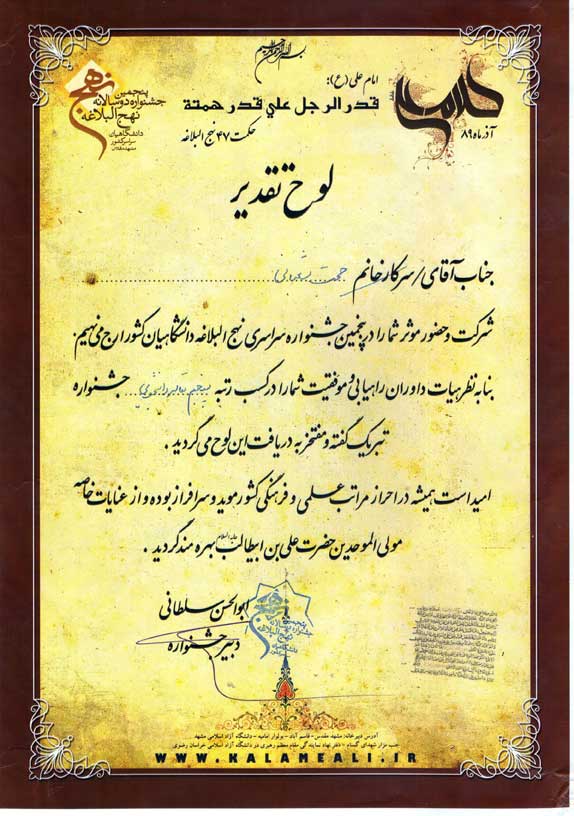 بسم الله الرحمن الرحیم
امام علی (ع):
قدر الرجل علي قدر همتة
حکمت ۴۷ نهج البلاغه
کلام علی
آذر ماه ۸۹
نهج
پنجمین
جشنواره دوسالانه
نهج البلاغه
دانشگاهیان
سراسر کشور
لوح تقدیر
جناب آقای / سرکار خانم حجت
شرکت و حضور موثر شما را در پنجمین جشنواره سراسری نهج البلاغه دانشگاهیان کشور ارج می نهیم.
بنا به نظر هیات داوران راهیابی و موفقیت شما را در کسب رتبه پنجم جشنواره
تبریک گفته و مفتخر به دریافت این لوح می گردید .
امید است همیشه در احراز مراتب علمی و فرهنگی کشور موید و سرافراز بوده و از عنایات خاصه
مولی الموحدین حضرت علی بن ابیطالب علیه السلام بهره مند گردید .
ابوالحسن سلطانی
دبیر جشنواره
پنجمین
جشنواره دوسالانه
نهج البلاغه
آدرس دبیرخانه: مشهد مقدس - قاسم آباد - بولوار امامیه - دانشگاه آزاد اسلامی مشهد
جنب مزار شهدای گمنام - دفتر نهاد نمایندگی مقام معظم رهبری در دانشگاه آزاد اسلامی خراسان رضوی
WWW.KALAMEALI.IR